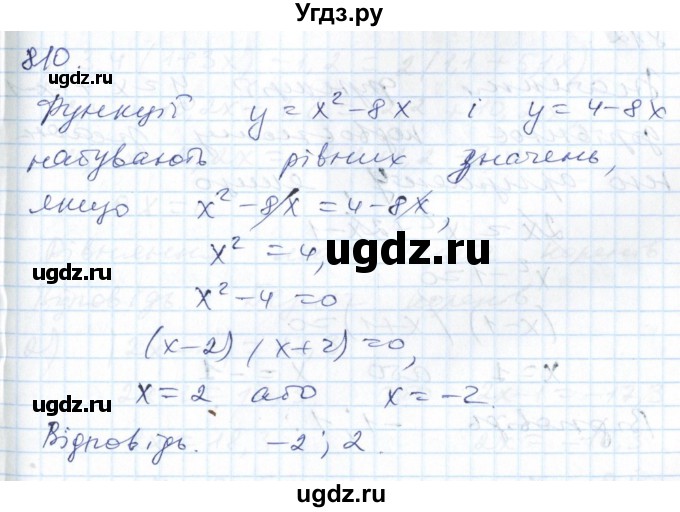 Угдз.ру
810.
ugdz.ru
Функції y = x² - 8x і y = 4 - 8x
набувають рівних значень,
ugdz.ru
якщо x² - 8x = 4 - 8x,
x² = 4,
ugdz.ru
x² - 4 = 0
ugdz.ru
(x-2)(x+2) = 0,
x = 2 або x = -2.
ugdz.ru
Відповідь. -2; 2.
ugdz.ru
ugdz.ru